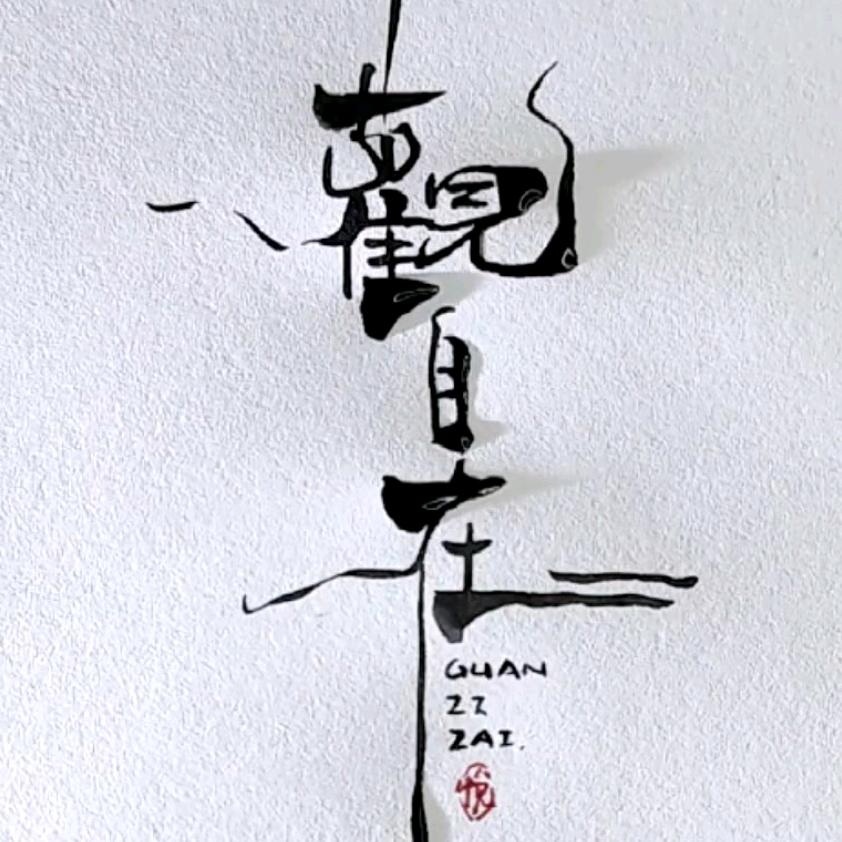 觀自在
GUAN
ZZ
ZAI.
悅